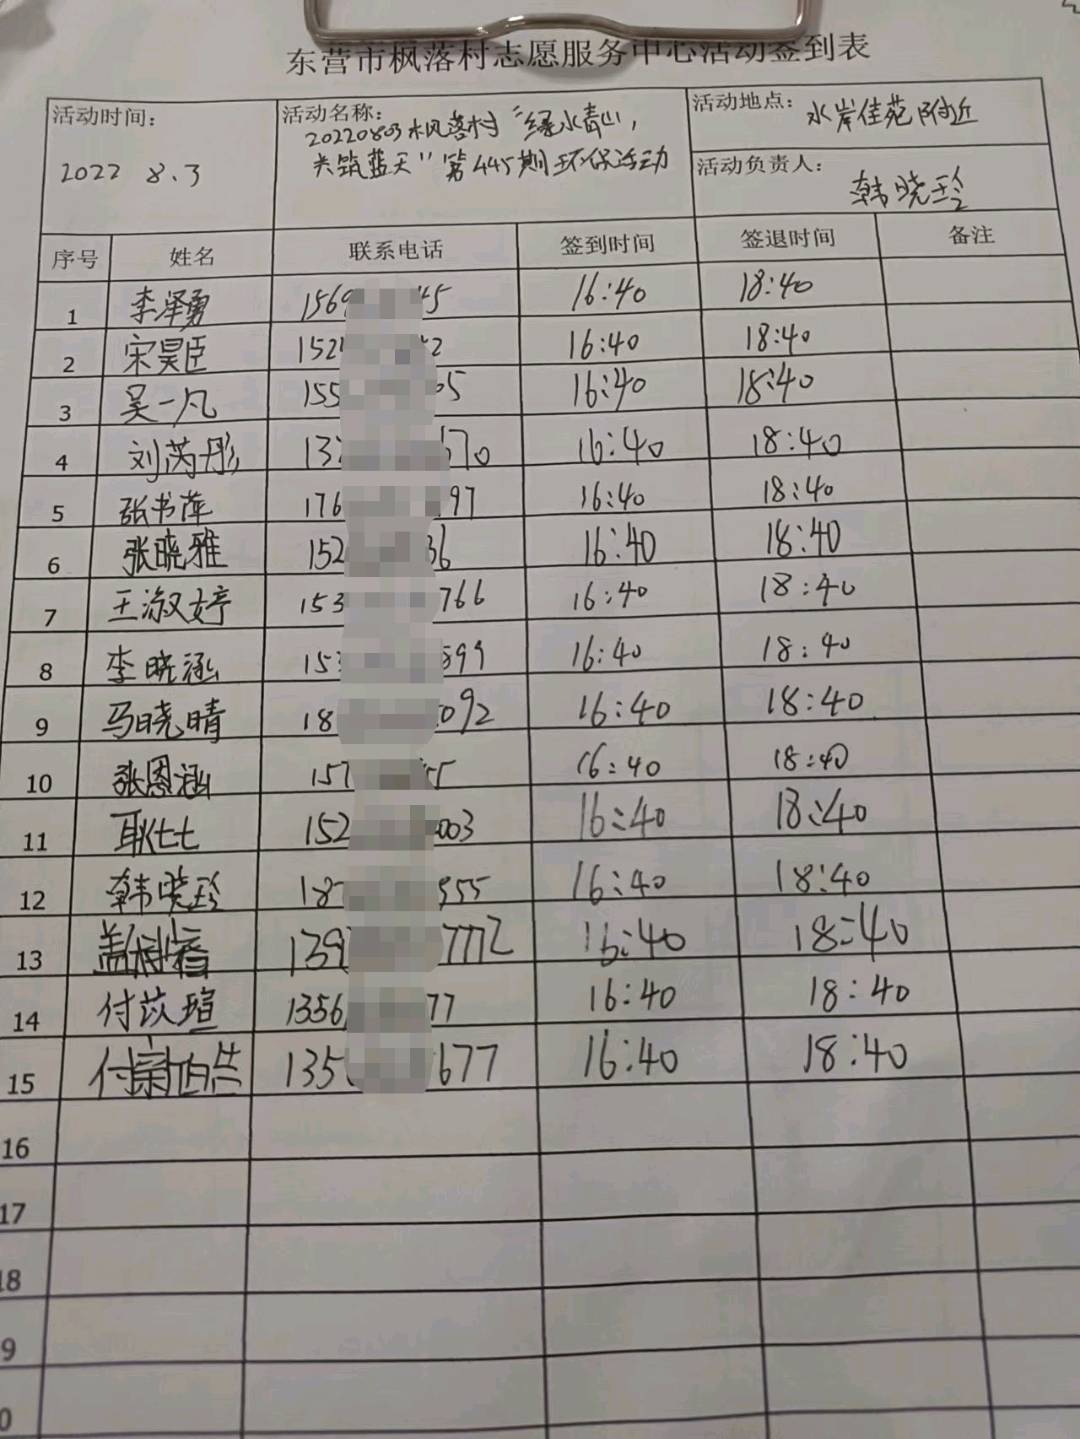 东营市枫落村志愿服务中心活动签到表
活动时间:
2022 8.3
活动名称:
20220803枫落村“绿水青山,
共筑蓝天”第445期环保活动
活动地点: 水岸佳苑附近
活动负责人: 韩晓玲
序号 姓名 联系电话 签到时间 签退时间 备注
1 李泽勇 156 45 16:40 18:40
2 宋昊臣 152 2 16:40 18:40
3 吴一凡 155 05 16:40 18:40
4 刘芮彤 13 70 16:40 18:40
5 张书萍 176 97 16:40 18:40
6 张晓雅 152 36 16:40 18:40
7 王淑婷 153 766 16:40 18:40
8 李晓涵 153 899 16:40 18:40
9 马晓晴 18 092 16:40 18:40
10 张恩涵 157 5 16:40 18:40
11 耿七七 152 003 16:40 18:40
12 韩晓玲 187 555 16:40 18:40
13 盖 139 7772 16:40 18:40
14 付苡瑄 1356 77 16:40 18:40
15 付 135 677 16:40 18:40
16
17
18
9
0